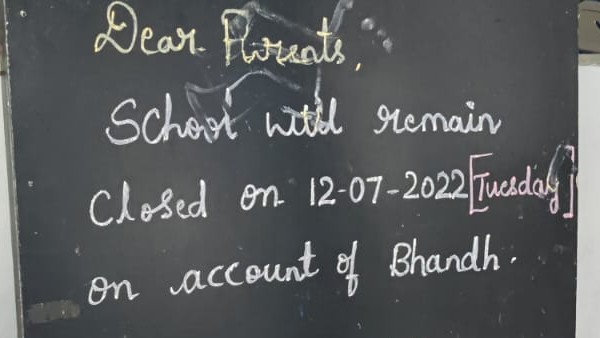 Dear Parents,
School will remain
Closed on 12-07-2022 [Tuesday]
on account of Bhandh.